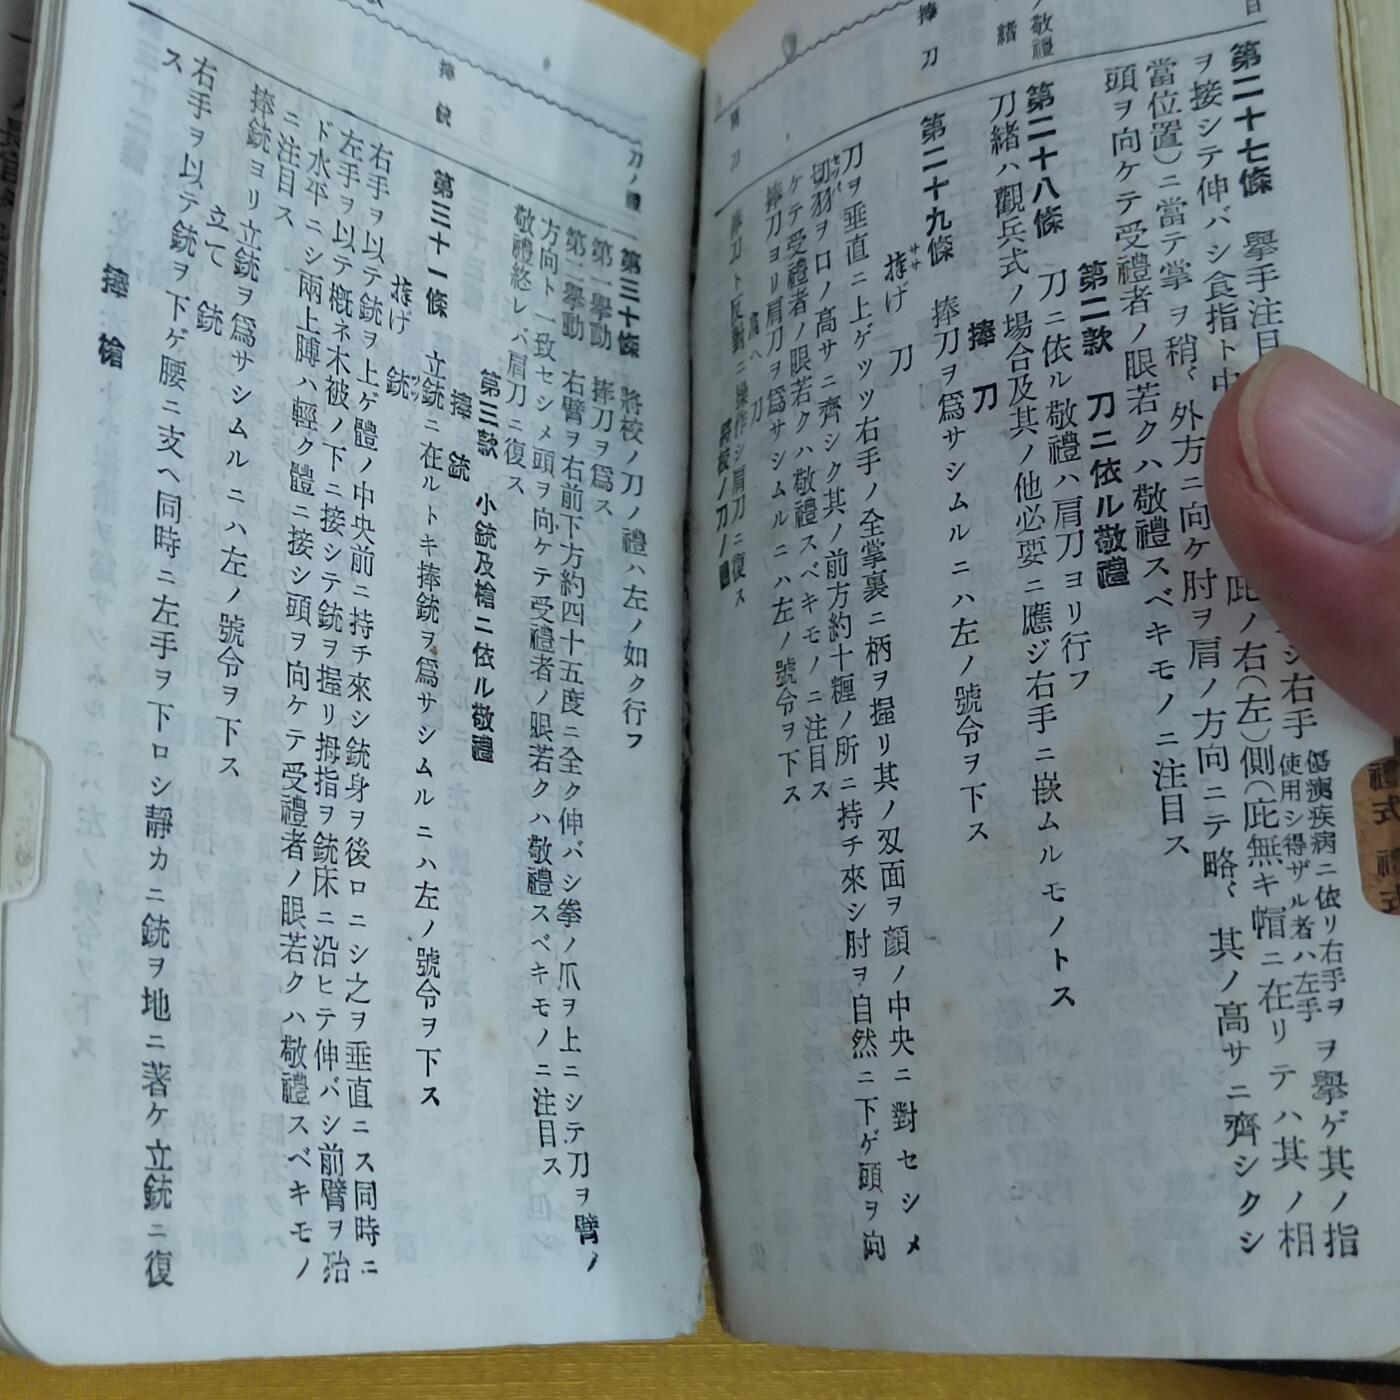 ノ敬禮
緒
捧刀
第二十七條　擧手注目
シ右手
傷痍疾病ニ依リ右手ヲ
使用シ得ザル者ハ左手
ヲ擧ゲ其ノ指
ヲ接シテ伸バシ食指ト中
庇ノ右(左)側(庇無キ帽ニ在リテハ其ノ相
當位置)ニ當テ掌ヲ稍〻外方ニ向ケ肘ヲ肩ノ方向ニテ略〻其ノ高サニ齊シクシ
頭ヲ向ケテ受禮者ノ眼若クハ敬禮スベキモノニ注目ス
第二款　刀ニ依ル敬禮
第二十八條　刀ニ依ル敬禮ハ肩刀ヨリ行フ
刀緒ハ觀兵式ノ場合及其ノ他必要ニ應ジ右手ニ嵌ムルモノトス
捧刀
第二十九條　捧刀ヲ爲サシムルニハ左ノ號令ヲ下ス
捧げ　刀
刀ヲ垂直ニ上ゲツツ右手ノ全掌裏ニ柄ヲ握リ其ノ刄面ヲ顔ノ中央ニ對セシメ
切羽ヲ口ノ高サニ齊シク其ノ前方約十糎ノ所ニ持チ來シ肘ヲ自然ニ下ゲ頭ヲ向
ケテ受禮者ノ眼若クハ敬禮スベキモノニ注目ス
捧刀ヨリ肩刀ヲ爲サシムルニハ左ノ號令ヲ下ス
肩へ　刀
捧刀ト反對ニ操作シ肩刀ニ復ス
將校ノ刀ノ禮
刀ノ禮
第三十條　將校ノ刀ノ禮ハ左ノ如ク行フ
第一擧動　捧刀ヲ爲ス
第二擧動　右臂ヲ右前下方約四十五度ニ全ク伸バシ拳ノ爪ヲ上ニシテ刀ヲ臂ノ
方向ト一致セシメ頭ヲ向ケテ受禮者ノ眼若クハ敬禮スベキモノニ注目ス
敬禮終レバ肩刀ニ復ス
第三款　小銃及槍ニ依ル敬禮
捧銃
捧銃
第三十一條　立銃ニ在ルトキ捧銃ヲ爲サシムルニハ左ノ號令ヲ下ス
捧げ　銃
右手ヲ以テ銃ヲ上ゲ體ノ中央前ニ持チ來シ銃身ヲ後ロニシ之ヲ垂直ニス同時ニ
左手ヲ以テ概ネ木被ノ下ニ接シテ銃ヲ握リ拇指ヲ銃床ニ沿ヒテ伸バシ前臂ヲ殆
ド水平ニシ兩上膊ハ輕ク體ニ接シ頭ヲ向ケテ受禮者ノ眼若クハ敬禮スベキモノ
ニ注目ス
捧銃ヨリ立銃ヲ爲サシムルニハ左ノ號令ヲ下ス
立て　銃
右手ヲ以テ銃ヲ下ゲ腰ニ支ヘ同時ニ左手ヲ下ロシ靜カニ銃ヲ地ニ著ケ立銃ニ復
ス
捧槍
禮式　禮式